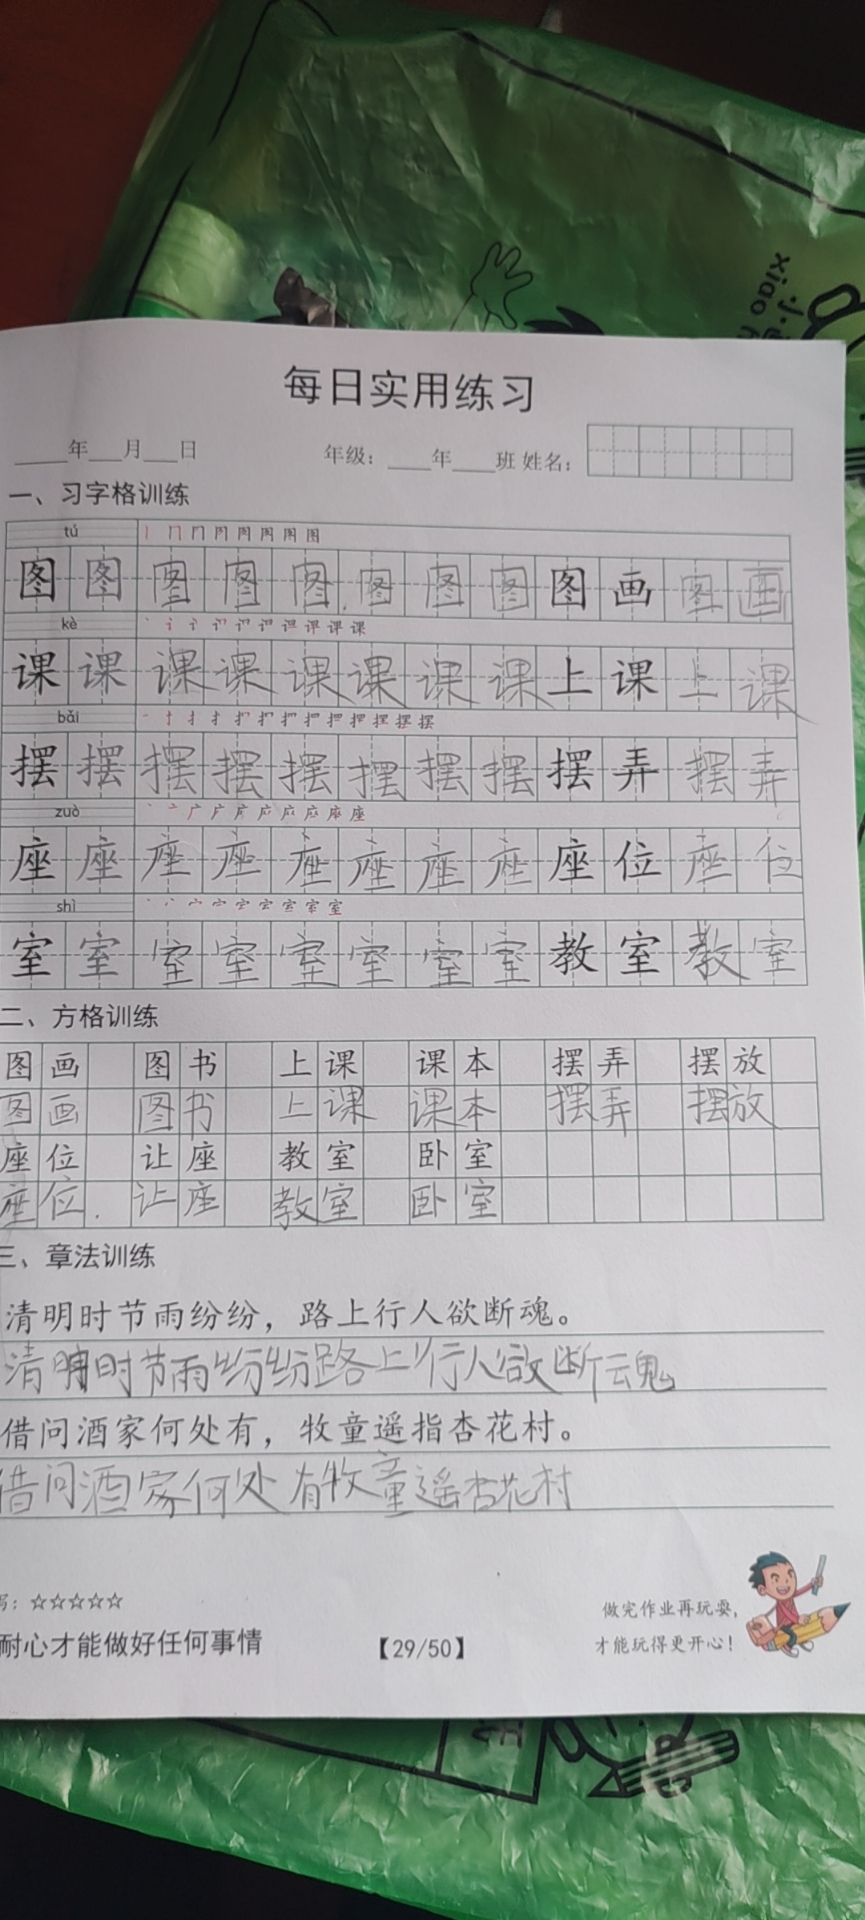 xiao
每日实用练习
年 月 日 年级： 年 班 姓名：
一、习字格训练
tú
图 图 图 图 图 图 图 图 图 画 图 画
kè
课 课 课 课 课 课 课 课 上 课 上 课
bǎi
摆 摆 摆 摆 摆 摆 摆 摆 摆 弄 摆 弄
zuò
座 座 座 座 座 座 座 座 座 位 座 位
shì
室 室 室 室 室 室 室 室 教 室 教 室
二、方格训练
图画 图书 上课 课本 摆弄 摆放
图画 图书 上课 课本 摆弄 摆放
座位 让座 教室 卧室
座位. 让座 教室 卧室
三、章法训练
清明时节雨纷纷，路上行人欲断魂。
清明时节雨纷纷路上行人欲断魂
借问酒家何处有，牧童遥指杏花村。
借问酒家何处有牧童遥杏花村
写：☆☆☆☆☆
耐心才能做好任何事情
【29/50】
做完作业再玩耍，
才能玩得更开心！